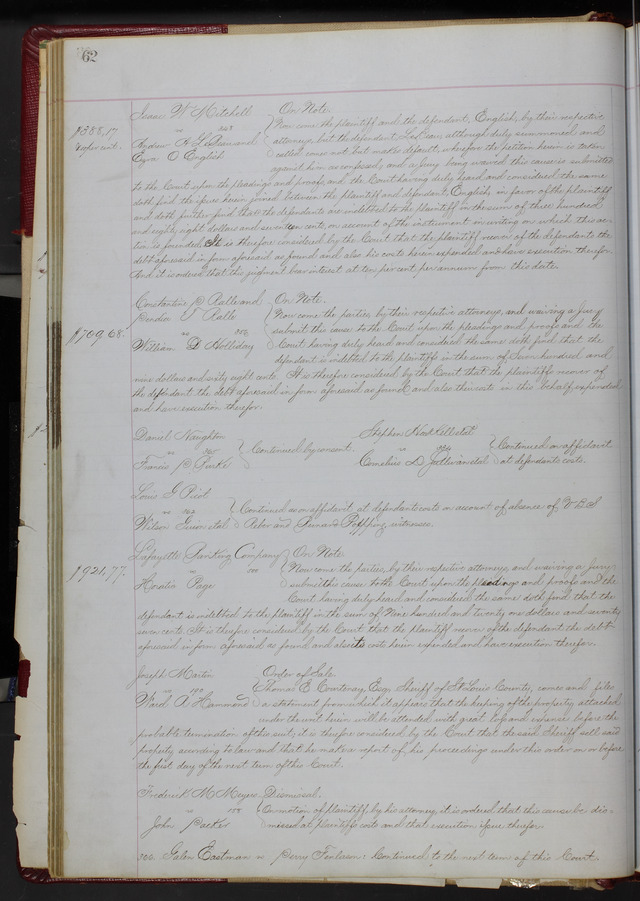 62
Isaac W Mitchell } On Note
$388,17 vs 248 Now come the plaintiff and the defendant, English, by their respective
10 per cent. Andrew H L attorneys, but the defendant, although duly summoned and
Ezra O English called comes not but makes default, wherefore the petition herein is taken
against him as confessed, and a jury being waived this cause is submitted
to the Court upon the pleadings and proofs, and the Court having duly heard and considered the same
doth find the issue herein joined between the plaintiff and defendant, English, in favor of the plaintiff
and doth further find that the defendants are indebted to the plaintiff in the sum of three hundred
and eighty eight dollars and seventeen cents, on account of the instrument in writing on which this ac-
tion is founded. It is therefore considered by the Court that the plaintiff recover of the defendants the
debt aforesaid in form aforesaid as found and also his costs herein expended and have execution therefor.
And it is ordered that this judgment bear interest at ten per cent per annum from this date.
Constantine P Ralli and } On Note.
Pandia T Ralli Now come the parties, by their respective attorneys, and waiving a jury
$709,68. vs submit the cause to the Court upon the pleadings and proofs and the
William D Holliday Court having duly heard and considered the same doth find that the
defendant is indebted to the plaintiffs in the sum of Seven hundred and
nine dollars and sixty eight cents. It is therefore considered by the Court that the plaintiffs recover of
the defendant the debt aforesaid in form aforesaid as found and also their costs in this behalf expended
and have execution therefor.
Daniel Naughton
vs } Continued by consent.
Francis P
Stephen Hoskill et al
vs } Continued on affidavit
Cornelius D Sullivan et al at defendants costs.
Louis G Picot
vs } Continued as on affidavit, at defendants costs on account of absence of
Wilson et al and witnesses.
Lafayette Banking Company } On Note
$921,77. vs Now come the parties, by their respective attorneys, and waiving a jury
Horatio Page submit this cause to the Court upon the pleadings and proofs and the
Court having duly heard and considered the same doth find that the
defendant is indebted to the plaintiff in the sum of Nine hundred and twenty one dollars and seventy
seven cents. It is therefore considered by the Court that the plaintiff recover of the defendant the debt
aforesaid in form aforesaid as found and also its costs herein expended and have execution therefor.
Joseph Martin Order of Sale.
vs 190 Thomas E Courtenay, Esq. Sheriff of St Louis County, comes and files
Ward A Hammond a statement from which it appears that the keeping of the property attached
under the writ herein will be attended with great loss and expense before the
probable termination of this suit; it is therefore considered by the Court that the said Sheriff sell said
property according to law and that he make a report of his proceedings under this order on or before
the first day of the next term of this Court.
Frederick M Meyers Dismissal.
vs 178 On motion of plaintiff, by his attorney, it is ordered that this cause be dis-
John Parker missed at plaintiffs costs and that execution issue therefor.
300. Galen Eastman vs Perry Tomlinson: Continued to the next term of this Court.